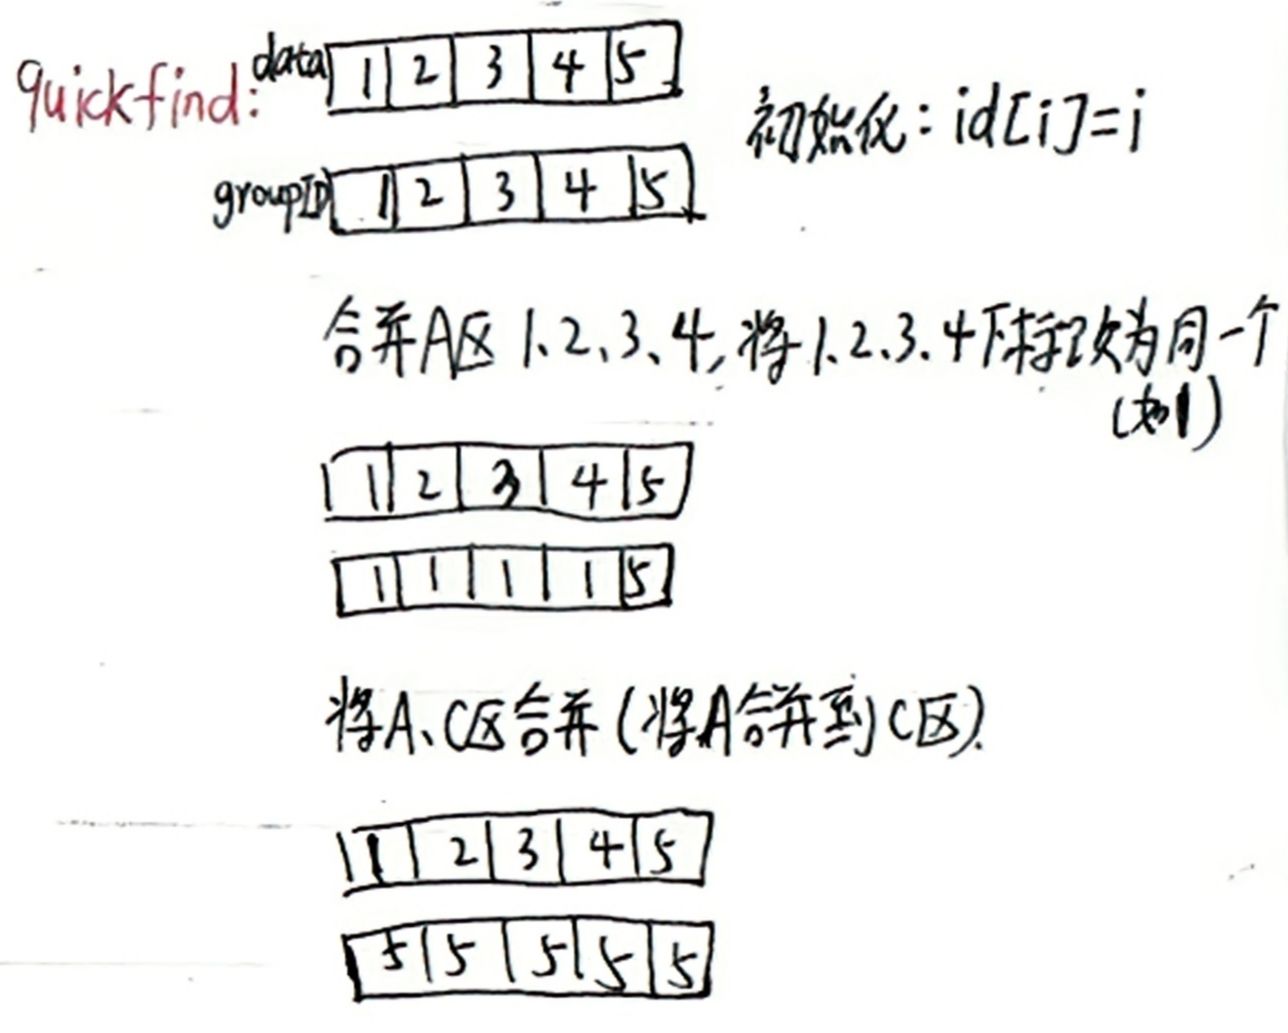 quickfind: data 1 2 3 4 5
初始化: id[i]=i
groupID 1 2 3 4 5
合并A区 1、2、3、4, 将1、2、3、4下标改为同一个
(如1)
1 2 3 4 5
1 1 1 1 5
将A、C区合并 (将A合并到C区).
1 2 3 4 5
5 5 5 5 5